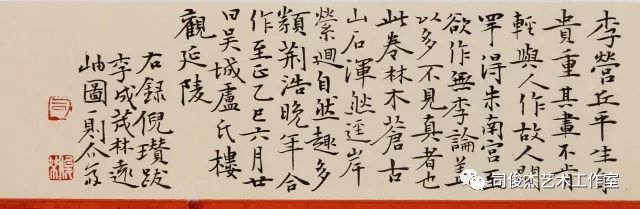 李營丘平生自
貴重其畫不肯
輕與人作故人間
罕得米南宮至
欲作無李論蓋
以多不見真者也
此卷林木蒼古
山石渾然逕岸
縈迴自然趣多
類荊浩晚年合
作至正乙巳六月廿
日吳城盧氏樓
觀延陵
右錄倪瓚跋
李成茂林遠
岫圖一則
司俊杰艺术工作室